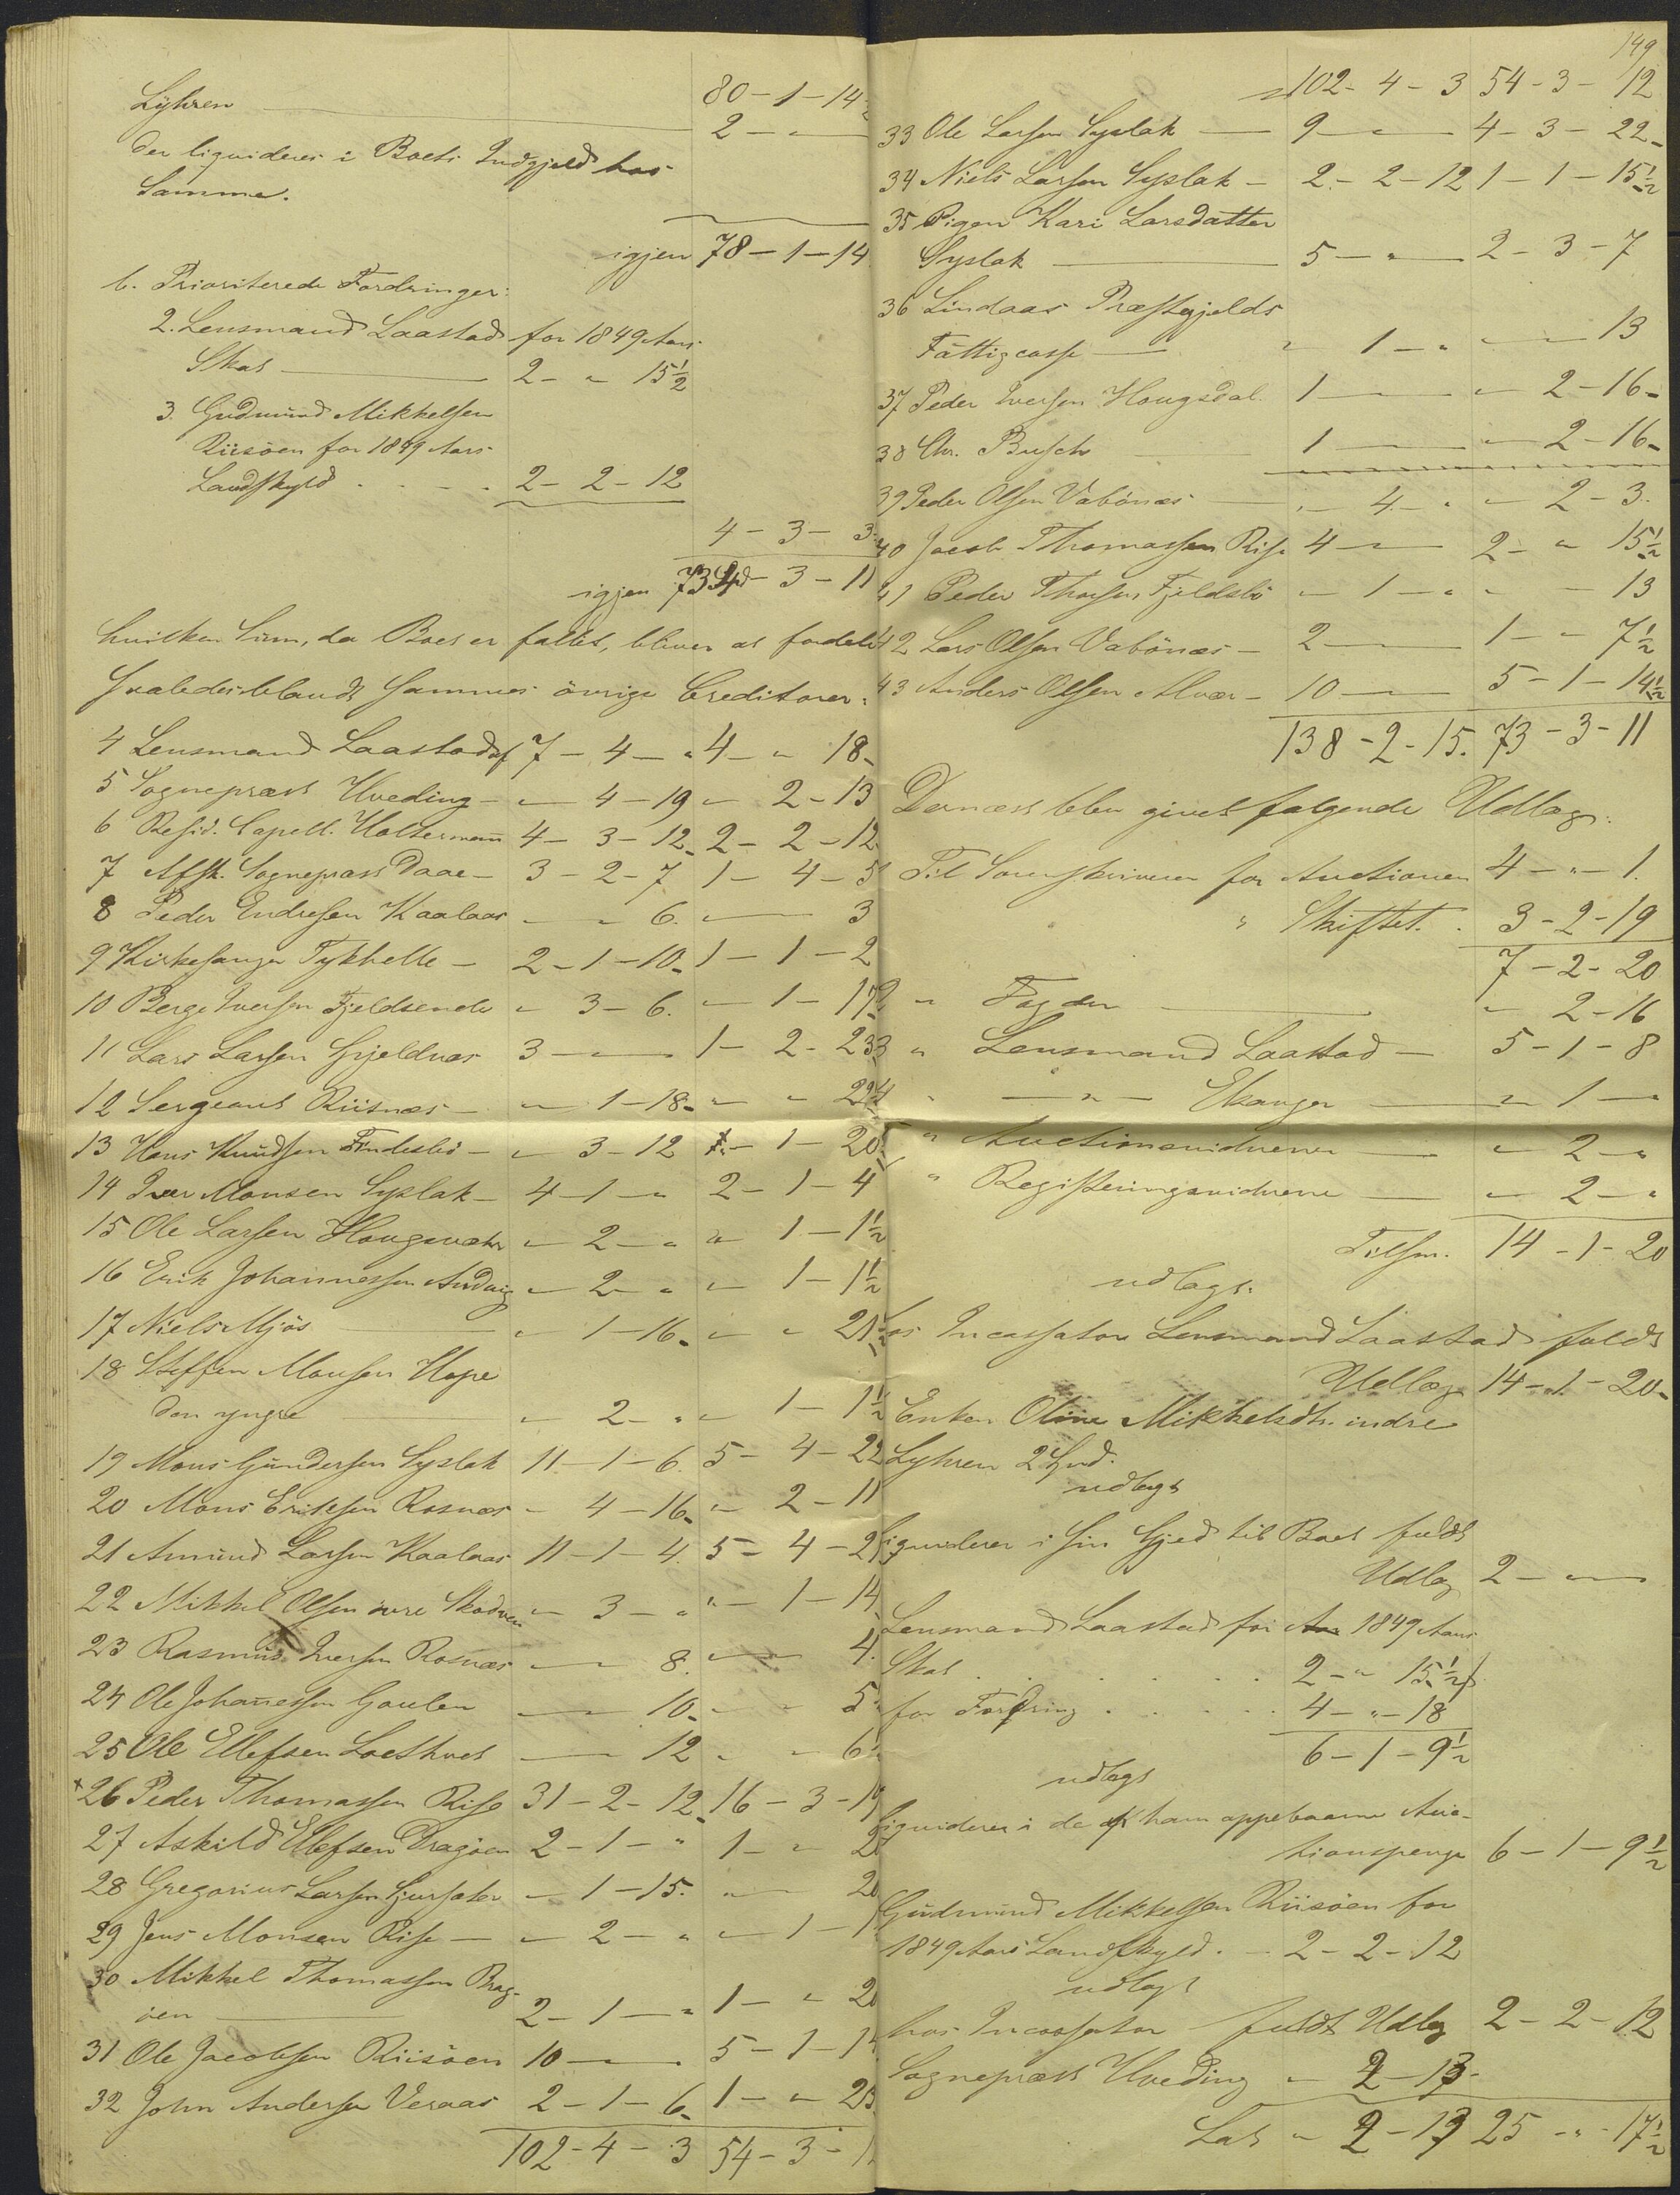 80-1-14
Lyhren 2 - " -
der liqvideres i Boets Indgjeld hos
Samme.
igjen 78-1-14
b. Prioriterede Fordringer:
2. Lensmand Laastad for 1849 Aars
Skat 2- " 15½
3. Gudmund Mikkelsen
Riisöen for 1849 Aars
Landskyld . . . . 2-2-12
4-3-3
igjen 73 Spd - 3-11
hvilken Sum, da Boet er fallit, bliver at fordele
saaledes blandt sammes övrige Creditorer:
4 Lensmand Laastad 7-4-" 4-"18
5 Sognepræst Hveding - "-4-19 "-2-13
6 Resid. Capell. Holtermann 4-3-12 2-2-12
7 Afsk. Sognepræst Daae - 3-2-7 1-4-5
8 Peder Endresen Kaalaas "-"6. "-3
9 Kirkesanger Tykhelle - 2-1-10 1-1-2
10 Berge Iversen Fjeldsende "3-6. "-1-17
11 Lars Larsen Gjeldnæs 3 - " - 1-2-23
12 Sergeant Riisnæs - "-1-18 "-"22
13 Hans Knudsen Findesbö - "-3-12 "-1-20
14 Iver Monsen Syslak - 4-1-" 2-1-4
15 Ole Larsen Hougsvær "-2-" "1-1½
16 Erik Johannessen Andvig "-2-" "-1-1½
17 Niels Mjös "-1-16 "-"21½
18 Steffen Monsen Hope
den yngre "-2-" "-1-1½
19 Mons Gundersen Syslak 11-1-6 5-4-22
20 Mons Eriksen Rosnæs - 4-16 "-2-11
21 Amund Larsen Kaalaas 11-1-4 5-4-21
22 Mikkel Olsen övre Skodven "-3-" "-1-14
23 Rasmus Iversen Rosnæs "-8. "-4.
24 Ole Johannessen Goulen "-10 "-"5
25 Ole Ellefsen Loethvet "-12 "-"6
26 Peder Thomassen Rise 31-2-12 16-3-19
27 Askild Ellefsen Dragöen 2-1-" 1-"2
28 Gregorius Larsen "-1-15. "-20
29 Jens Monsen Rise - "-2-" "-1-1
30 Mikkel Thomassen Drag-
öen 2-1-" 1-"2
31 Ole Jacobsen Riisöen 10-"-. 5-1-14
32 John Andersen Veraas 2-1-6 1-"-23
102-4-3 54-3-1
149
102-4-3 54-3-12
33 Ole Larsen Syslak 9-"- 4-3-22
34 Niels Larsen Syslak - 2-2-12 1-1-15½
35 Pigen Kari Larsdatter
Syslak 5-"- 2-3-7
36 Lindaas Præstegjelds
Fattigcasse " 1-" "-"13
37 Peder Iversen Hougsdal. 1-"- "2-16
38 Chr. Busch 1-"- "-2-16
39 Peder Olsen Vabönæs "-4-" "-2-3.
40 Jacob Thomassen Rise 4-"- 2-"15½
41 Peder Thorsen Fjeldsbö "-1-" "-"13
42 Lars Olsen Vabönæs - 2-"- 1-"7½
43 Anders Olsen Alvær - 10-"- 5-1-14½
138-2-15. 73-3-11
Dernæst blev givet følgende Udlæg:
Til Sorenskriveren for Auctionen 4-"-1.
" Skiftet. . 3-2-19
7-2-20
2 " Fogden "-2-16
3 " Lensmand Laastad - 5-1-8
4 " -"- Ekanger "1-"
" Auctionsvidnerne "-2-"
" Registeringsvidnerne "-2-"
Tilsm. 14-1-20
udlagt.
hos Incassator Lensmand Laastad fuldt
Udlæg 14-1-20
Enken Oline Mikkelsdtr. indre
Lyhren 2 Spd.
udlagt
liqviderer i sin Gjed til Boet fuldt
Udlæg 2-"-
Lensmand Laastad for Aar 1849 Aars
Skat . . . . . . 2-"15½
for Fordring . . . . 4-"-18
6-1-9½
udlagt
liqviderer i de af ham oppebaarne Auc-
tionspenge 6-1-9½
Gudmund Mikkelsen Riisöen for
1849 Aars Landskyld. - 2-2-12
udlagt
hos Incassator fuldt Udlæg 2-2-12
Sognepræst Hveding "-2-13-
Lat " 2-13 25-"-17½